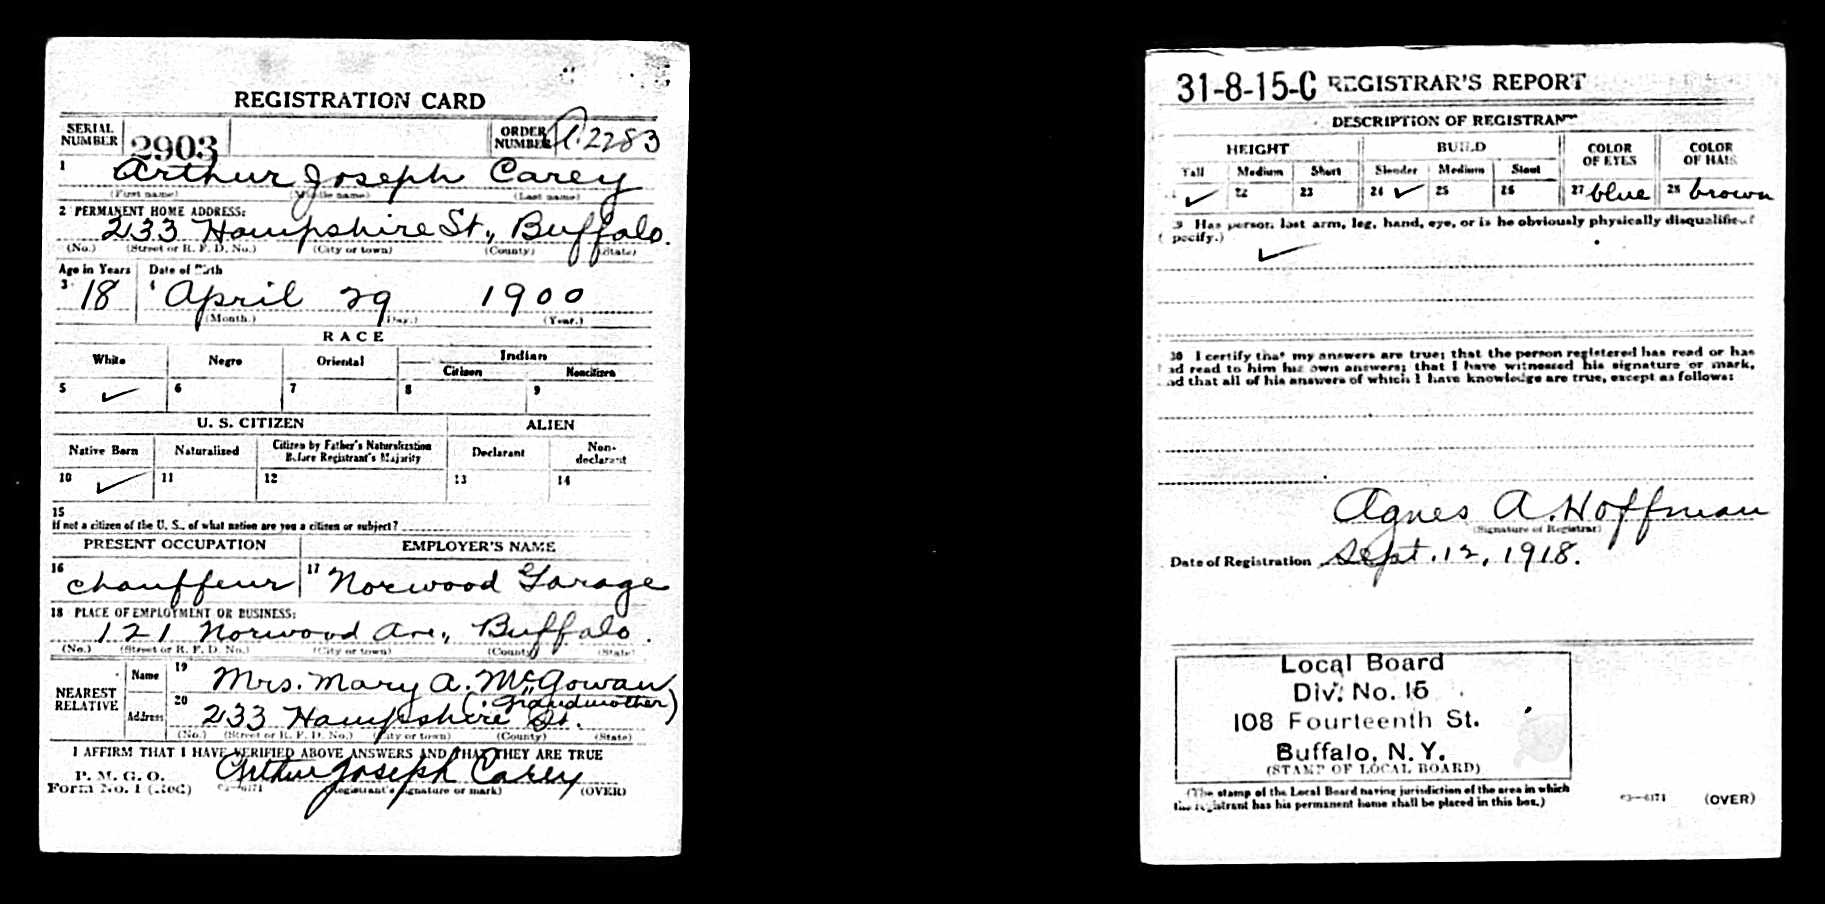 REGISTRATION CARD
SERIAL NUMBER 2903 ORDER NUMBER A2283
1 Arthur Joseph Carey
(First name) (Middle name) (Last name)
2 PERMANENT HOME ADDRESS:
233 Hampshire St., Buffalo.
(No.) (Street or R. F. D. No.) (City or town) (County) (State)
Age in Years Date of Birth
3 18 4 April 29 1900
(Month.) (Day.) (Year.)
RACE
White Negro Oriental Indian
Citizen Noncitizen
5 ✓ 6 7 8 9
U. S. CITIZEN ALIEN
Native Born Naturalized Citizen by Father's Naturalization Before Registrant's Majority Declarant Non-declarant
10 ✓ 11 12 13 14
15
If not a citizen of the U. S., of what nation are you a citizen or subject?
PRESENT OCCUPATION EMPLOYER'S NAME
16 chauffeur 17 Norwood Garage
18 PLACE OF EMPLOYMENT OR BUSINESS:
121 Norwood Ave., Buffalo.
(No.) (Street or R. F. D. No.) (City or town) (County) (State)
NEAREST RELATIVE Name 19 Mrs. Mary A. McGowan
(Grandmother)
Address 20 233 Hampshire St.
(No.) (Street or R. F. D. No.) (City or town) (County) (State)
I AFFIRM THAT I HAVE VERIFIED ABOVE ANSWERS AND THAT THEY ARE TRUE
P. M. G. O.
Form No. 1 (Red) 03—6171 Arthur Joseph Carey
(Registrant's signature or mark) (OVER)
31-8-15-C REGISTRAR'S REPORT
DESCRIPTION OF REGISTRANT
HEIGHT BUILD COLOR OF EYES COLOR OF HAIR
Tall Medium Short Slender Medium Stout
✓ 22 23 24 ✓ 25 26 27 blue 28 brown
29 Has person lost arm, leg, hand, eye, or is he obviously physically disqualified?
(specify.)
✓
30 I certify that my answers are true; that the person registered has read or has
had read to him his own answers; that I have witnessed his signature or mark,
and that all of his answers of which I have knowledge are true, except as follows:
Agnes A. Hoffman
(Signature of Registrar)
Date of Registration Sept. 12, 1918.
Local Board
Div. No. 15
108 Fourteenth St.
Buffalo, N. Y.
(STAMP OF LOCAL BOARD)
(The stamp of the Local Board having jurisdiction of the area in which
the registrant has his permanent home shall be placed in this box.)
03—6171 (OVER)